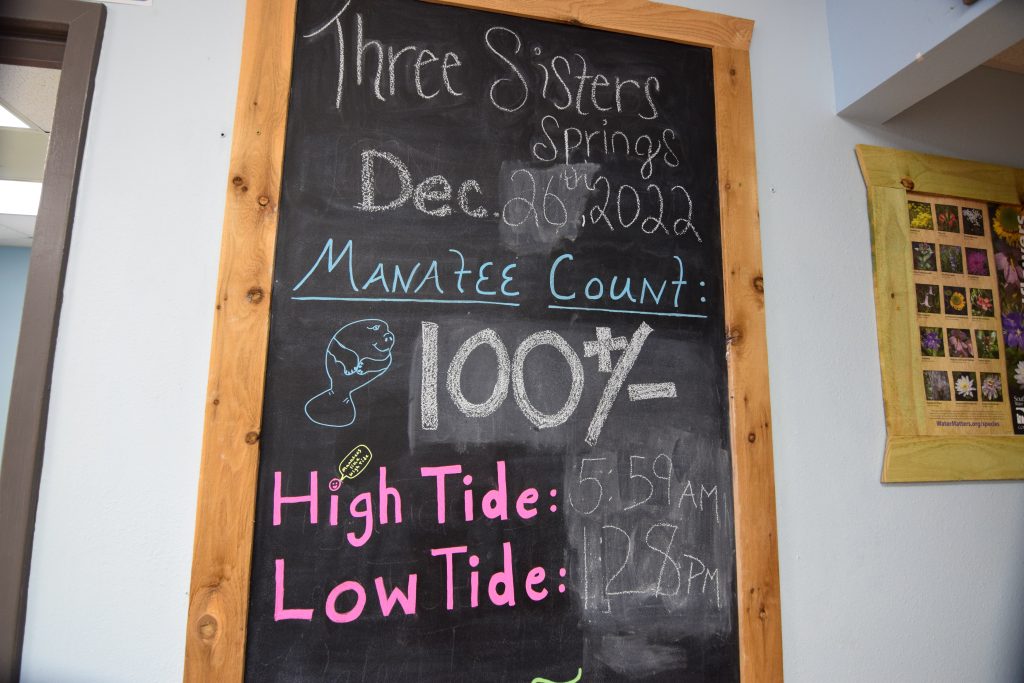 Three Sisters
Springs
Dec. 26th, 2022
Manatee Count:
100+/-
Manatees
like
High Tide
High Tide: 5:59 AM
Low Tide: 1:28 PM
WaterMatters.org/species